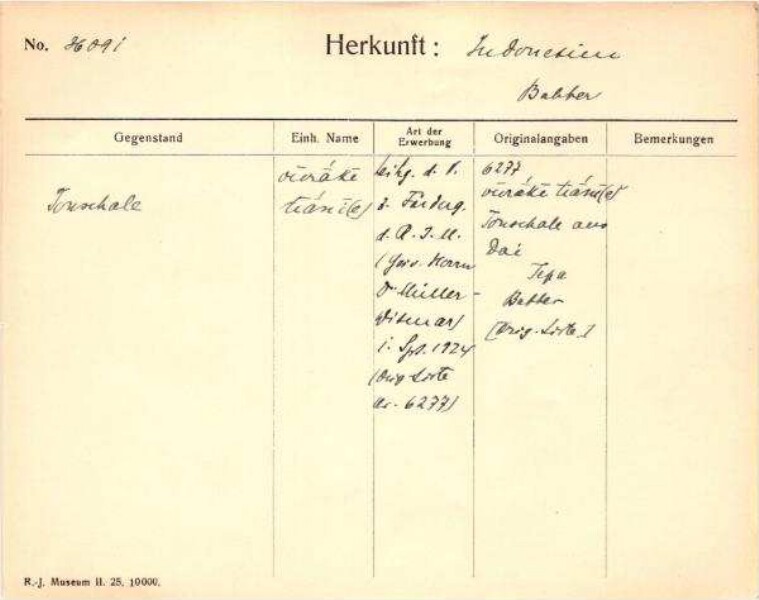 No. 36091 Herkunft: Indonesien
Babber
Gegenstand Einh. Name Art der Erwerbung Originalangaben Bemerkungen
Tonschale
d. V.
z. Förderg.
d. R. J. M.
Herrn
Dr Müller-
Wismar)
i. Spt. 1924
(Orig-Liste
Nr. 6277)
6277
Tonschale aus
Dai
Tepa
Babber
(Orig.-Liste)
R.-J. Museum II. 25. 10000.